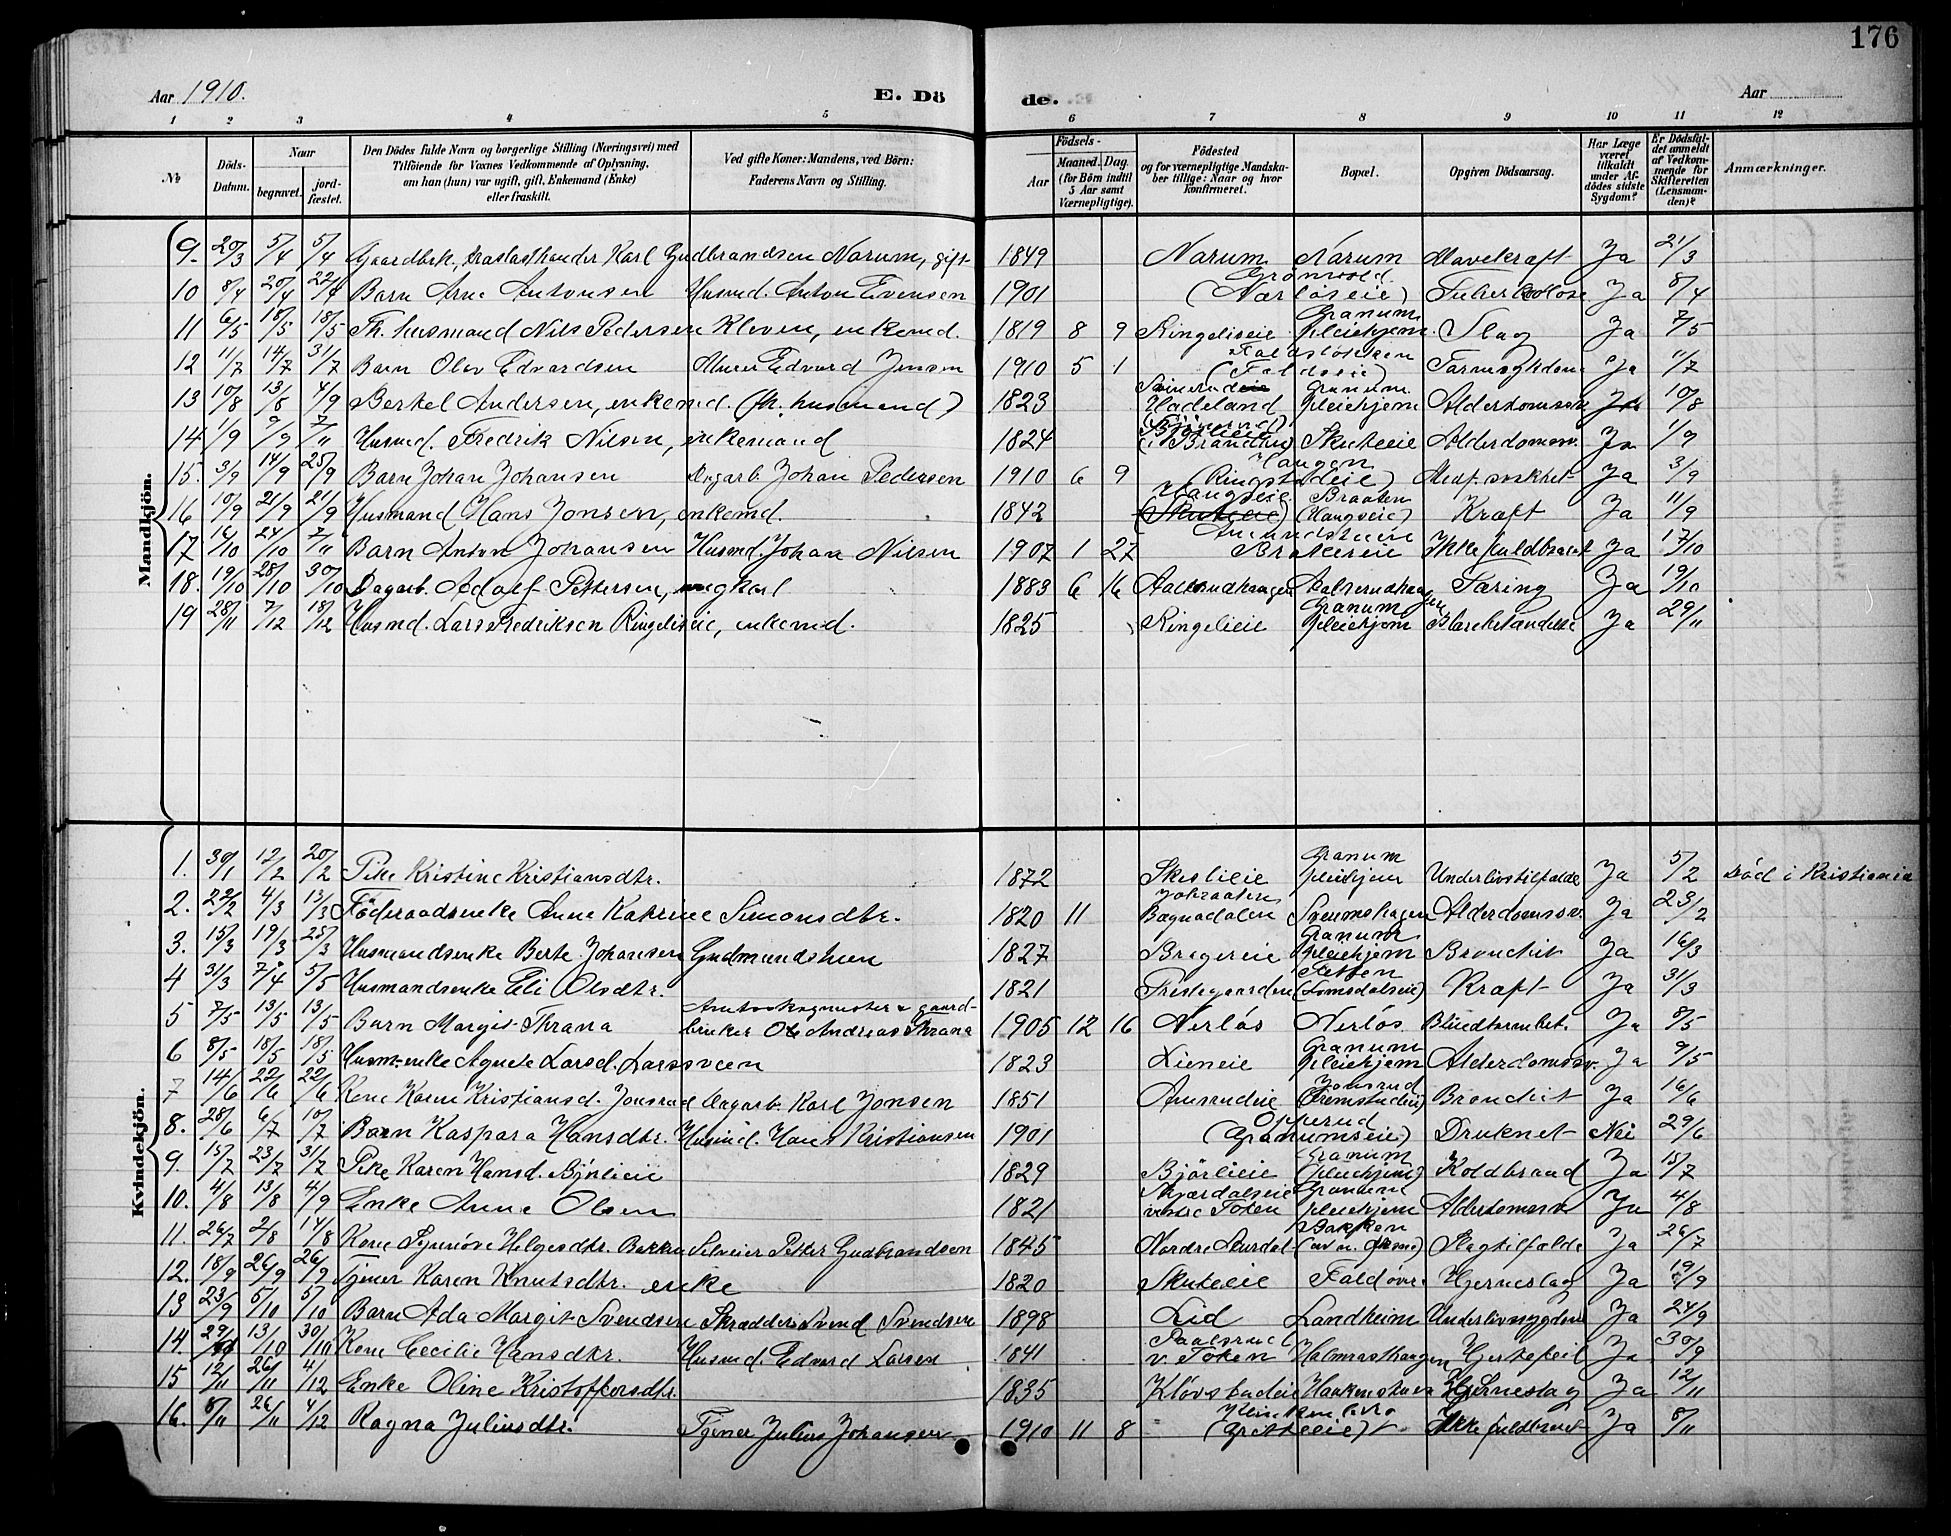 176
Aar 1910. E. Dö de. Aar
1 2 3 4 5 6 7 8 9 10 11 12
No
Döds-Datum.
Naar begravet. jordfæstet.
Den Dödes fulde Navn og borgerlige Stilling (Næringsvei) med Tilföiende for Voxnes Vedkommende af Oplysning, om han (hun) var ugift, gift, Enkemand (Enke) eller fraskilt.
Ved gifte Koner: Mandens, ved Börn: Faderens Navn og Stilling.
Födsels- Aar Maaned. Dag. (for Börn indtil 5 Aar samt Værnepligtige).
Födested og for værnepligtige Mandskaber tillige: Naar og hvor konfirmeret.
Bopæl.
Opgiven Dödsaarsag.
Har Læge været tilkaldt under Afdödes sidste Sygdom?
Er Dödsfaldet anmeldt af Vedkommende for Skifteretten (Lensmanden)?
Anmærkninger.
Mandkjön.
9. 20/3 5/4 5/4 Gaardbrk., Karl Gudbrandsen Narum, gift 1849 Narum Narum Mavekræft Ja 21/3
10 8/4 20/4 22/4 Barn Arne Antonsen Husmd. Anton Evensen 1901 Grönvold (Nærlöseie) Tuberkulose Ja 8/4
11 6/5 18/5 18/5 Fh. husmand Nils Pedersen Kleven, enkemd. 1819 8 9 Ringeliseie Granum Pleiehjem Slag Ja 7/5
12 11/7 14/7 31/7 Barn Olav Edvardsen Edvard Jensen 1910 5 1 (Faldseie) Tarmsygdom Ja 11/7
13 10/8 13/8 4/9 Bertel Andersen, enkemd. (fh. husmand) 1823 Hadeland Granum Pleiehjem Alderdomssv. Ja 10/8
14 1/9 9/9 7/11 Husmd. Fredrik Nilsen, enkemand 1824 (i Brandbu) Skuteeie Alderdomssv. Ja 1/9
15. 3/9 14/9 25/9 Barn Johan Johansen Dagarb. Johan Pedersen 1910 6 9 Haugen (Ringstadeie) Medf. svakhet Ja 3/9
16 10/9 21/9 21/9 Husmand Hans Jonsen, enkemd. 1842 Haugseie (Skuteeie) Braaten (Haugseie) Kræft Ja 11/9
17 14/10 24/10 7/11 Barn Anton Johansen Husmd. Johan Nilsen 1907 1 27 Amundstuen Brakereie Ikke fuldbaaret Ja 17/10
18. 19/10 28/10 30/10 Dagarb. Adolf Pettersen, ungkarl 1883 6 16 Aalsrudhaugen Aalsrudhaugen Tæring Ja 19/10
19 28/11 7/12 18/12 Husmd. Lars Fredriksen Ringeliseie, enkemd. 1825 Ringelieie Granum Pleiehjem Ja 29/11
Kvindekjön.
1. 30/1 12/2 20/2 Pike Kristine Kristiansdtr. 1872 Skislieie Granum Pleiehjem Underlivstilfælde Ja 5/2 Död i Kristiania
2. 22/2 4/3 13/3 Föderaadsenke Anne Katrine Simonsdtr. 1820 11 Bagnadalen Alderdomssv. Ja 23/2
3. 15/3 19/3 25/3 Husmandsenke Berte Johansen Gudmundshuen 1827 Bragereie Granum Pleiehjem Bronchit Ja 16/3
4 31/3 7/4 5/5 Husmandsenke Eli Olsdtr. 1821 Prestegaarden (Lomsdalseie) Kræft Ja 31/3
5 7/5 13/5 13/5 Barn Margit Thrana Amtsskogmester & gaardbruker Ole Andreas Thrana 1905 12 16 Nerlös Nerlös Blindtarmbet. Ja 8/5
6 8/5 18/5 18/5 Husm-enke Agnete Larsd. Larssveen 1823 Lieneie Granum Pleiehjem Alderdomssv. Ja 9/5
7 14/6 22/6 22/6 Kone Karen Kristiansd. Jonsrud Dagarb. Karl Jonsen 1851 Amrudeie Jonsrud Bronchit Ja 16/6
8. 28/6 6/7 10/7 Barn Kaspara Hansdtr. Husmd. Hans Kristiansen 1901 Opperud (Granumseie) Druknet Nei 29/6
9. 15/7 23/7 31/7 Pike Karen Hansd. 1829 Björlieie Granum (Pleiehjem) Koldbrand Ja 15/7
10. 4/8 13/8 4/9 Enke Anne Olsen 1821 vestre Toten Granum Pleiehjem Alderdomssv. Ja 4/8
11. 26/7 2/8 14/8 Kone Synnöve Helgesdtr. Bakken Selveier Petter Gudbrandsen 1845 Nordre Aurdal Bakken Slagtilfælde Ja 26/7
12. 18/9 26/9 26/9 Tjener Karen Knutsdtr. enke 1820 Skuteeie Fald övr. Hjerneslag Ja 19/9
13 23/9 5/10 5/10 Barn Ada Margit Svendsen Skrædder Svend Svendsen 1898 Lid Landheim Underlivssygdom Ja 24/9
14. 29/9 13/10 30/10 Kone Cecilie Hansdtr. Husmd. Edvard Larsen 1841 Paalsrud v. Toten Halmrasthaugen Hjertefeil Ja 30/9
15 12/11 26/11 4/12 Enke Oline Kristoffersdtr. 1835 Klövstadeie Haakenstuen Hjerneslag Ja 12/11
16. 8/11 26/11 4/12 Ragna Juliusdtr. Tjener Julius Johansen 1910 11 8 Ikke fuldbaaret Ja 8/11